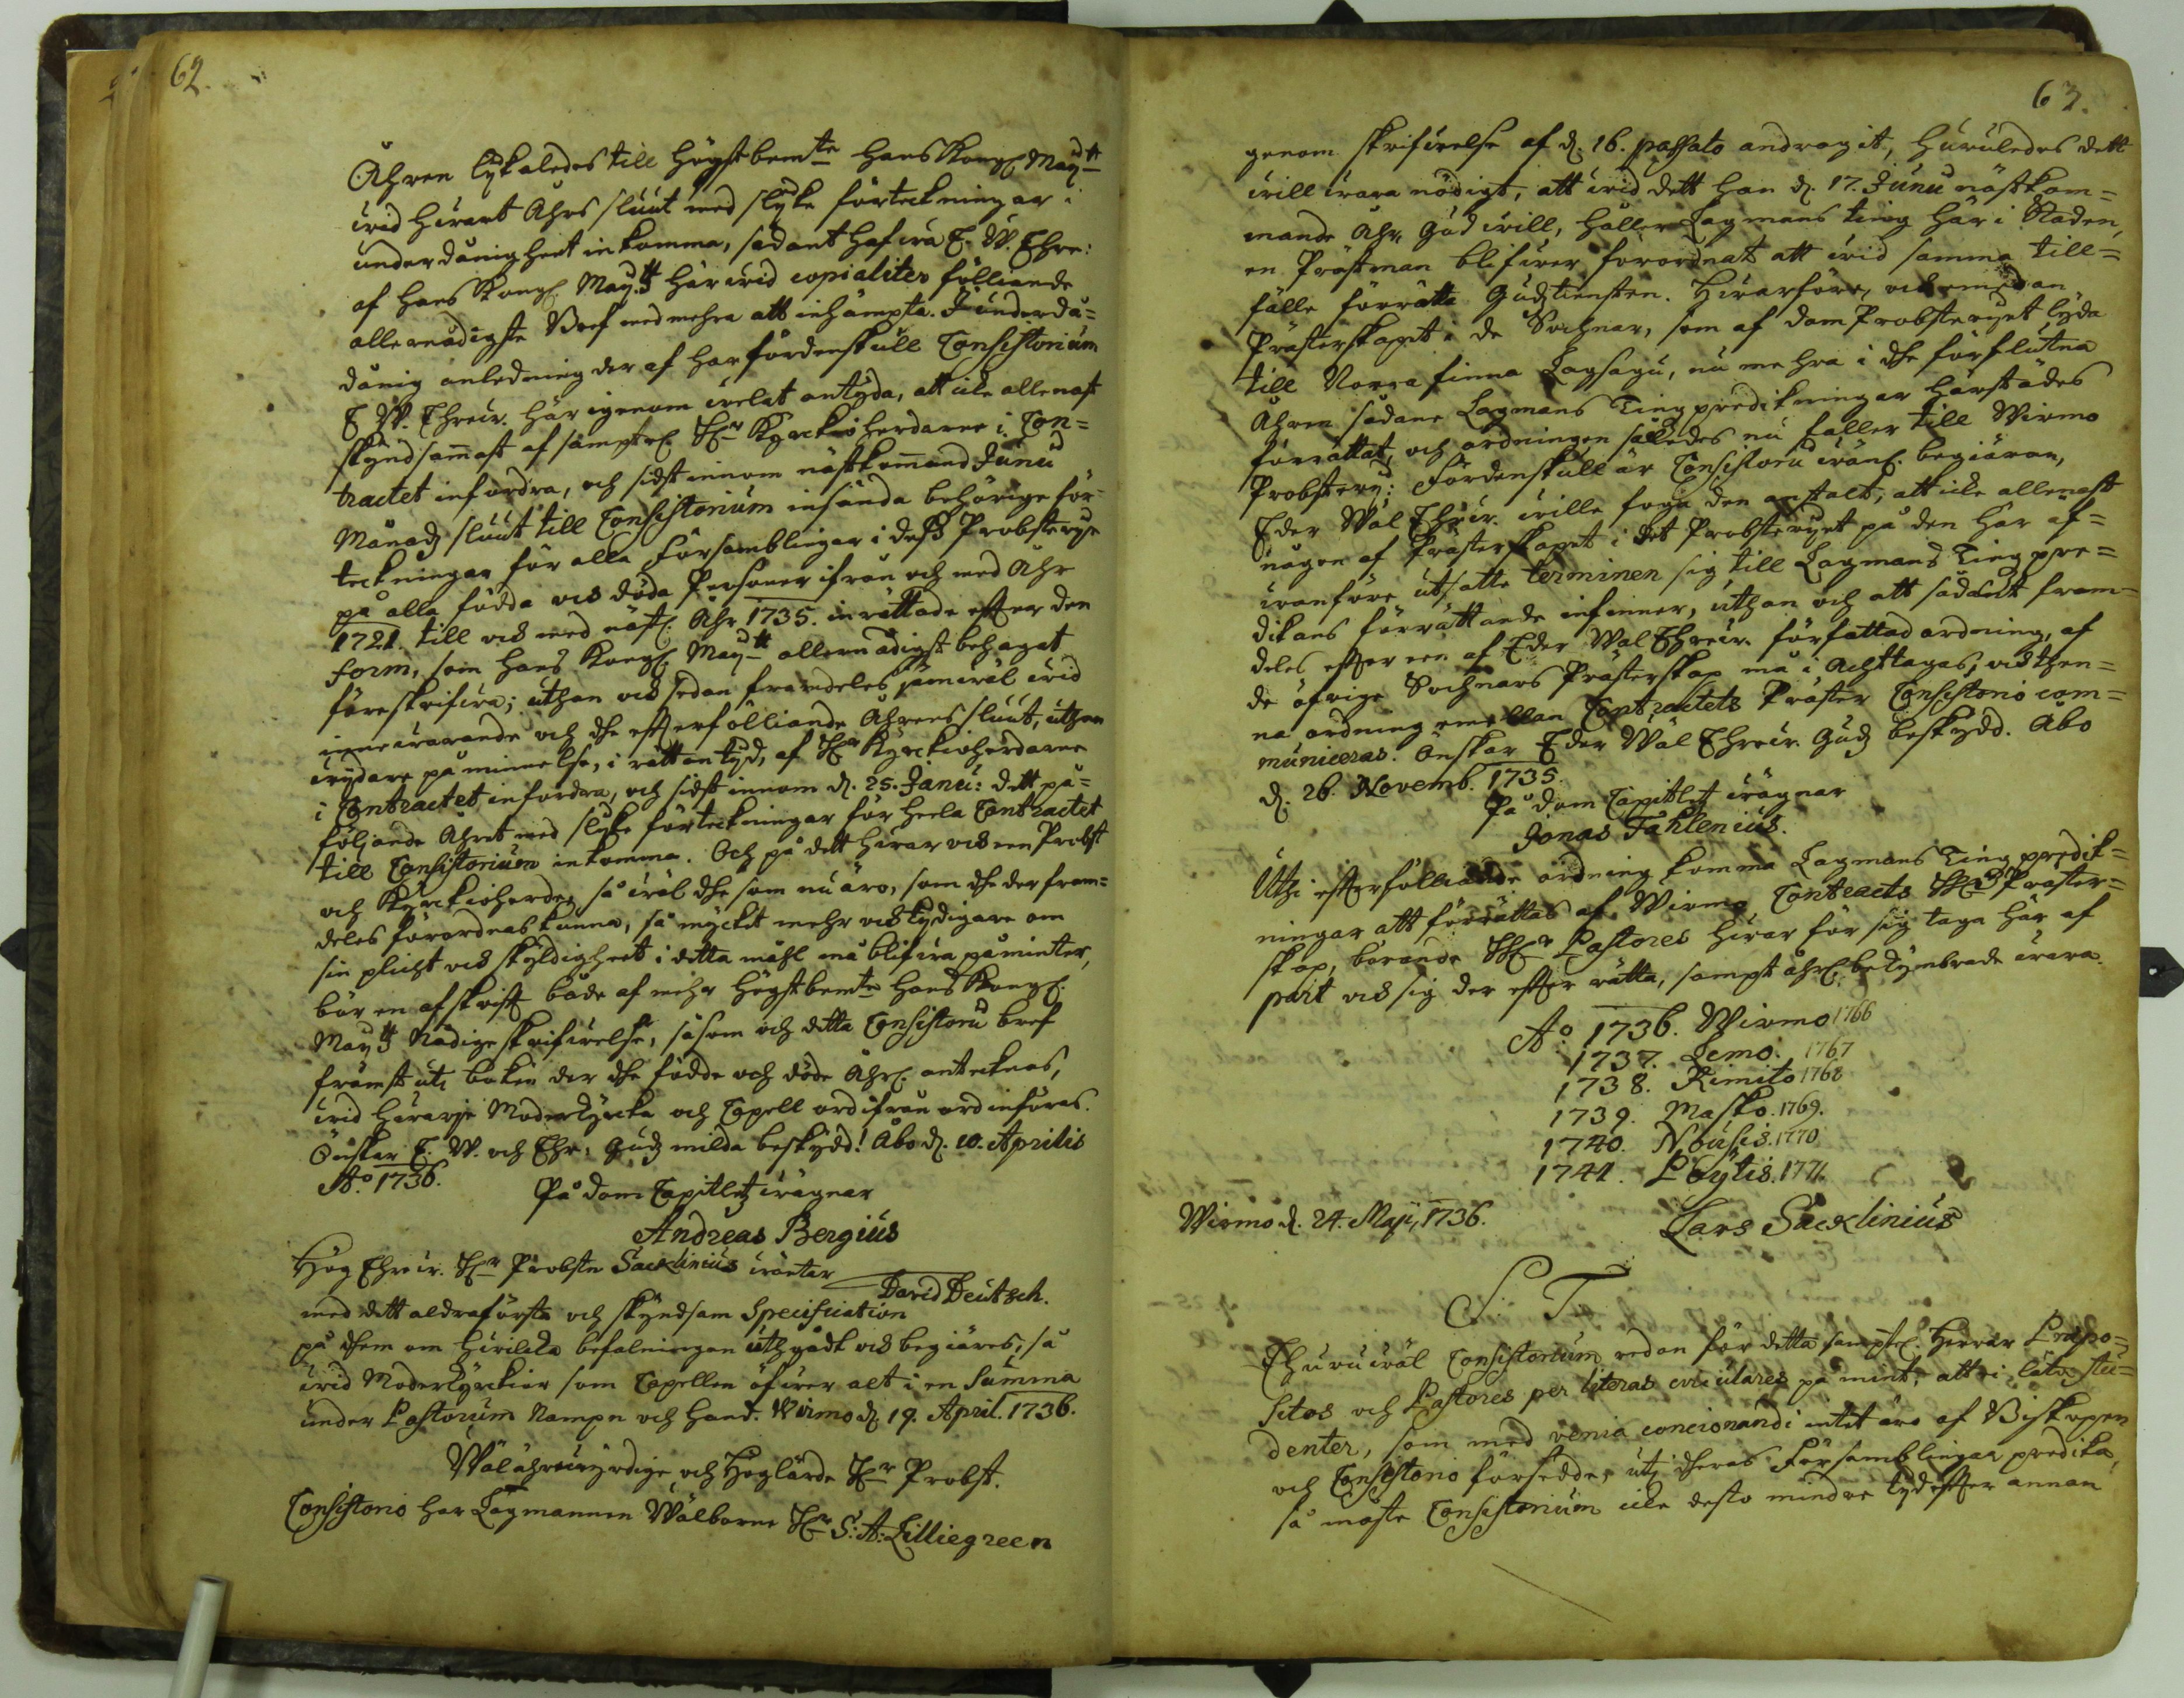 62.
Åhren lijkaledes till högstbemte hans Kongl May:tt
wid hwart Åhrs sluut med slijke förtekningar i
underdånigheet inkomma, sådant hafwa E. W. Ehre:
af hans Kongl May:tz här wid copialiter fölliande
allernådigste Bref med mehra att inhämpta. I underdå=
dånig anledning der af har fördenskull Consistorium
E W. Ehrew. här igenom welat antyda, att icke allenast
skyndsammast af sampteL HL:r Kyrckioherdarne i Con=
tractet infordra, och sidst innom nästkommand Junii
Månadz sluut till Consistorium insända behörige för-
tekningar för alla Församblingar i dess Probsterije
på alla födda och döda Persohner ifrån och med Åhr
1721. till och med näst: Åhr 1735. inrättade efter den
form, som Hans Kongl May:tt allernådigst behagat
föreskrifwa; uthan och sedan framdeles jämwäl wid
innewarande och the efterfölliande Åhrens sluut, uthan
wijdare påminnelse, i rättan tijd, af HL:r Kyrckioherdarne
i Contractet infordra, och sidst innom d. 25. Janu: dett på=
följande Åhret med slijke förtekningar för heela Contractet
till Consistorium inkomma. Och på dett hwar och een Probst
och Kyrckioherde, så wäl the som nu äro, som the der fram=
deles förordnas kunna, så mycket mehr och tydigare om
sin plicht och skyldigheet i detta måhl må blifwa påminter,
bör en afskrift både af mehr högstbemte hans Kongl.
May:tz Nådige skrifwelse, såsom och detta Consistorii bref
främst uti boken der the födde och döde Åhrl. antecknas,
wid hwarje Moderkyrcka och Capell ord ifrån ord införas.
Önskar E. W. och Ehr: Gudz milda beskydd! Åbo d. 10. Aprilis
A:o 1736.
På Dom Capitletz wägnar
Andreas Bergius
David Deutsch.
Hög Ehrew. HL:r Probsten Sacklinius wäntar
med dett aldraförsta och skyndsam Specification
på them om hwilcka befalningen uthgådt och begiäres, så
wid Moderkyrckior som Capellen öfwer alt i en Summa
under Pastorum Nampn och hand. Wirmo d. 19. April. 1736.
Wälährewyrdige och Höglärde HL:r Probst.
Consistorio har Lagmannen Wälborne HL:r S: A: Lilliegreen
63.
genom skrifwelse af d. 16. passato andragit, huruledes dett
will wara nödigt, att wid dett han d. 17. Junii nästkom=
mande Åhr, Gud will, håller Lagmans ting här i Staden,
en Prästman blifwer förordnat att wid samma till=
fälle förrätta Gudztiensten. Hwarföre, och emedan
Prästerskapet i de Sochnar, som af dom Probsteryet lyda
till Norra finna Lagsagu, nu mehra i the förflutna
Åhren sådane Lagmans Tingpredikningar härstädes
förrättat, och ordningen således nu faller till Wirmo
Probstery: Fördenskull är Consistorii wänl. begiäran,
Eder Wäl Ehrew. wille foga den anstalt, att icke allenast
någon af Prästerskapet i det Probsteryet på den här of=
wanföre utsatte terminen sig till Lagmans Tingpre=
dikans förrättande infinner, uthan och att sådant fram=
deles efter een af Eder Wäl Ehrew. författad ordning, af
de öfrige Sochnars Prästerskap må i Achttagas, och then=
na ordning emellan Contractets Präster Consistorio com=
municeras. Önskar Eder Wäl Ehrew. Gudz beskydd. Åbo
d. 26. Novemb. 1735.
På Dom Capitletz wägnar
Jonas Fahlenius.
Uthi efterfölliande ordning komma Lagmans Ting predik=
ningar att förrättas af Wirmo Contracts HL:r Präster=
skap, börande HL:r Pastores hwar för sig taga här af
part och sig der efter rätta, sampt åhrl. bekymbrade wara.
A:o 1736. Wirmo 1766
1737. Lemo. 1767
1738. Kimito 1768
1739. Masko. 1769.
1740. Nousis. 1770
1741. Pöytis. 1771.
Wirmo d. 24. Maji, 1736.
Lars Sacklinius
S. T.
Ehuruwäl Consistorium redan för detta samptl. Herrar Præpo=
sitos och Pastores per literas circulares påmint, att ei låta stu=
denter, som med venia concionandi intet äro af Biskopen
och Consistorio försedde, uti theras Församblingar predika,
så måste Consistorium icke desto mindre tyd efter annan